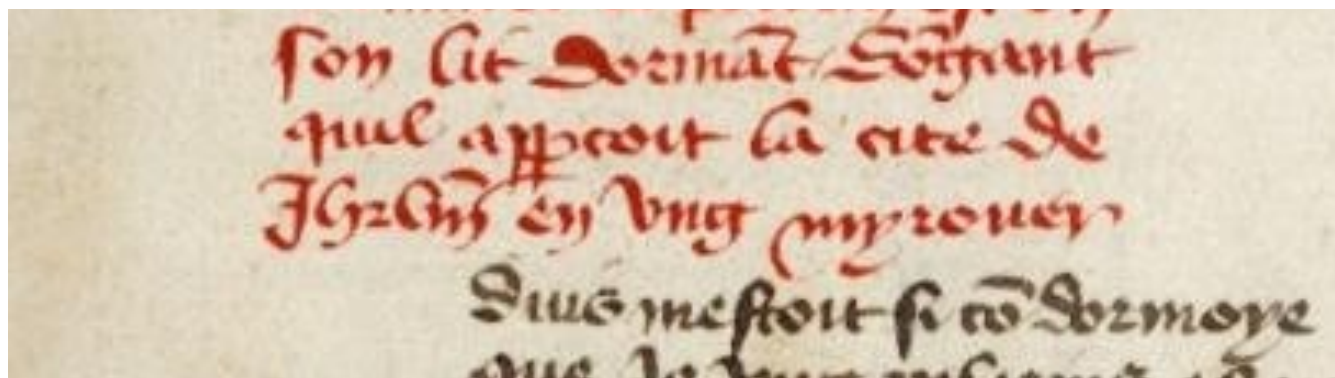 son lit dormāt Sōgant
quil apꝑcoit la cite de
Jhrlm̄ en vng myrouer
Duis mestoit si cō dormoye